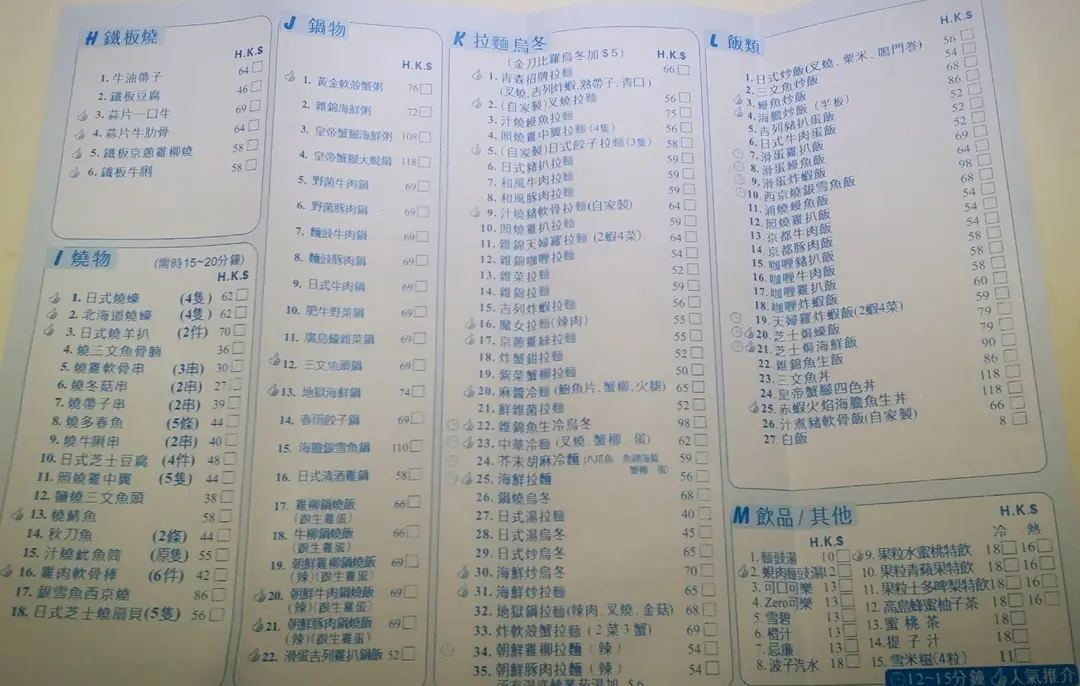 H 鐵板燒
H.K.$
1. 牛油帶子 64
2. 鐵板豆腐 46
3. 蒜片一口牛 69
4. 蒜片牛肋骨 64
5. 鐵板京蔥雞柳燒 58
6. 鐵板牛脷 58
I 燒物 (需時15~20分鐘)
H.K.$
1. 日式燒蠔 (4隻) 62
2. 北海道燒蠔 (4隻) 62
3. 日式燒羊扒 (2件) 70
4. 燒三文魚骨腩 36
5. 燒雞軟骨串 (3串) 30
6. 燒冬菇串 (2串) 27
7. 燒帶子串 (2串) 39
8. 燒多春魚 (5條) 44
9. 燒牛脷串 (2串) 40
10. 日式芝士豆腐 (4件) 48
11. 照燒雞中翼 (5隻) 44
12. 鹽燒三文魚頭 38
13. 燒鯖魚 58
14. 秋刀魚 (2條) 44
15. 汁燒魷魚筒 (原隻) 55
16. 雞肉軟骨棒 (6件) 42
17. 銀雪魚西京燒 86
18. 日式芝士燒扇貝(5隻) 56
J 鍋物
H.K.$
1. 黃金軟殼蟹粥 76
2. 雜錦海鮮粥 72
3. 皇帝蟹腳海鮮粥 108
4. 皇帝蟹腳大蜆鍋 118
5. 野菌牛肉鍋 69
6. 野菌豚肉鍋 69
7. 麵豉牛肉鍋 69
8. 麵豉豚肉鍋 69
9. 日式牛肉鍋 69
10. 肥牛野菜鍋 69
11. 廣島蠔雜菜鍋 69
12. 三文魚頭鍋 69
13. 地獄海鮮鍋 74
14. 春雨餃子鍋 69
15. 海膽銀雪魚鍋 110
16. 日式清酒雞鍋 58
17. 雞柳鍋燒飯 66
(跟生雞蛋)
18. 牛柳鍋燒飯 66
(跟生雞蛋)
19. 朝鮮雞柳鍋燒飯 69
(辣)(跟生雞蛋)
20. 朝鮮牛肉鍋燒飯 69
(辣)(跟生雞蛋)
21. 朝鮮豚肉鍋燒飯 69
(辣)(跟生雞蛋)
22. 滑蛋吉列雞扒鍋飯 52
K 拉麵 烏冬
(金刀比羅烏冬加$5) H.K.$
1. 青森招牌拉麵 66
(叉燒,吉列炸蝦,熟帶子,青口)
2. (自家製)叉燒拉麵 56
3. 汁燒鰻魚拉麵 75
4. 照燒雞中翼拉麵(4隻) 56
5. (自家製)日式餃子拉麵(3隻) 58
6. 日式豬扒拉麵 59
7. 和風牛肉拉麵 59
8. 和風豚肉拉麵 59
9. 汁燒豬軟骨拉麵(自家製) 64
10. 照燒雞扒拉麵 59
11. 雜錦天婦羅拉麵 (2蝦4菜) 64
12. 雜錦咖喱拉麵 54
13. 雜菜拉麵 52
14. 雜錦拉麵 59
15. 吉列炸蝦拉麵 56
16. 魔女拉麵(辣肉) 55
17. 京蔥雞絲拉麵 55
18. 炸蟹鉗拉麵 52
19. 紫菜蟹柳拉麵 50
20. 麻醬冷麵 (鮑魚片,蟹柳,火腿) 65
21. 鮮雜菌拉麵 52
22. 雜錦魚生冷烏冬 98
23. 中華冷麵 (叉燒,蟹柳,蛋) 62
24. 芥末胡麻冷麵 59
25. 海鮮拉麵 56
26. 鍋燒烏冬 68
27. 日式湯拉麵 40
28. 日式湯烏冬 45
29. 日式炒烏冬 65
30. 海鮮炒烏冬 70
31. 海鮮炒拉麵 65
32. 地獄鍋拉麵(辣肉,叉燒,金菇) 68
33. 炸軟殼蟹拉麵 (2菜3蟹) 69
34. 朝鮮雞柳拉麵 (辣) 54
35. 朝鮮豚肉拉麵 (辣) 54
L 飯類
H.K.$
1. 日式炒飯(叉燒,粟米,鳴門卷) 56
2. 三文魚炒飯 54
3. 鰻魚炒飯 68
4. 海膽炒飯 (半板) 86
5. 吉列豬扒蛋飯 52
6. 日式牛肉蛋飯 52
7. 滑蛋雞扒飯 52
8. 滑蛋鰻魚飯 69
9. 滑蛋炸蝦飯 64
10. 西京燒銀雪魚飯 98
11. 浦燒鰻魚飯 68
12. 照燒雞扒飯 54
13. 京都牛肉飯 54
14. 京都豚肉飯 54
15. 咖喱豬扒飯 58
16. 咖喱牛肉飯 58
17. 咖喱雞扒飯 58
18. 咖喱炸蝦飯 60
19. 天婦羅炸蝦飯(2蝦4菜) 59
20. 芝士焗蠔飯 79
21. 芝士焗海鮮飯 79
22. 雜錦魚生飯 90
23. 三文魚丼 86
24. 皇帝蟹腳四色丼 118
25. 赤蝦火焰海膽魚生丼 118
26. 汁煮豬軟骨飯(自家製) 66
27. 白飯 8
M 飲品/其他
H.K.$
1. 麵豉湯 10
2. 蜆肉麵豉湯 12
3. 可口可樂 13
4. Zero可樂 13
5. 雪碧 13
6. 橙汁 13
7. 忌廉 13
8. 波子汽水 18
H.K.$
冷 熱
9. 果粒水蜜桃特飲 18 16
10. 果粒青蘋果特飲 18 16
11. 果粒士多啤梨特飲 18 16
12. 高島蜂蜜柚子茶 18 16
13. 蜜桃茶 18
14. 提子汁 18
15. 雪米糍(4粒) 11
12~15分鐘 人氣推介